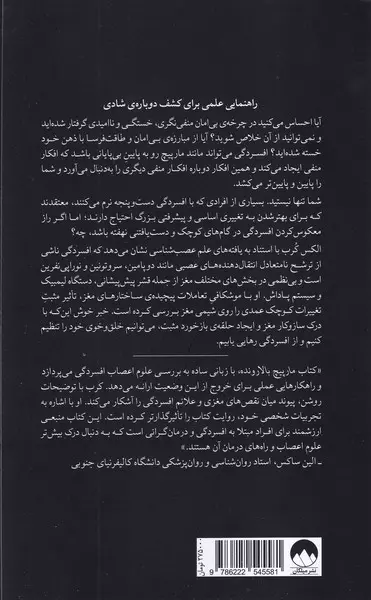 راهنمایی علمی برای کشف دوباره‌ی شادی
آیا احساس می‌کنید در چرخه‌ی بی‌امان منفی‌نگری، خستگی و ناامیدی گرفتار شده‌اید
و نمی‌توانید از آن خلاص شوید؟ آیا از مبارزه‌ی بی‌امان و طاقت‌فرسا با ذهن خود
خسته شده‌اید؟ افسردگی می‌تواند مانند مارپیچ رو به پایین بی‌پایانی باشد که افکار
منفی ایجاد می‌کند و همین افکار دوباره افکار منفی دیگری را به‌دنبال می‌آورد و شما را
پایین و پایین‌تر می‌کشد.
شما تنها نیستید. بسیاری از افرادی که با افسردگی دست‌وپنجه نرم می‌کنند، معتقدند
که برای بهترشدن به تغییری اساسی و پیشرفتی بزرگ احتیاج دارند؛ اما اگر راز
معکوس‌کردن افسردگی در گام‌های کوچک و دست‌یافتنی نهفته باشد، چه؟
الکس کُرب با استناد به یافته‌های علم عصب‌شناسی نشان می‌دهد که افسردگی ناشی
از ترشح نامتعادل انتقال‌دهنده‌های عصبی مانند دوپامین، سروتونین و نوراپی‌نفرین
است و بی‌نظمی در بخش‌های مختلف مغز از جمله قشر پیش‌پیشانی، دستگاه لیمبیک
و سیستم پاداش. او با موشکافی تعاملات پیچیده‌ی ساختارهای مغز، تأثیر مثبتِ
تغییرات کوچک عمدی را روی شیمی مغز بررسی کرده است. خبر خوش این‌که با
درک سازوکار مغز و ایجاد حلقه‌ی بازخورد مثبت، می‌توانیم خلق‌وخوی خود را تنظیم
کنیم و از افسردگی رهایی یابیم.
«کتاب مارپیچ بالارونده، با زبانی ساده به بررسی علوم اعصاب افسردگی می‌پردازد
و راهکارهایی عملی برای خروج از این وضعیت ارائه می‌دهد. کرب با توضیحات
روشن، پیوند میان نقص‌های مغزی و علائم افسردگی را آشکار می‌کند. او با اشاره به
تجربیات شخصی خود، روایت کتاب را تأثیرگذارتر کرده است. این کتاب منبعی
ارزشمند برای افراد مبتلا به افسردگی و درمان‌گرانی است که به دنبال درک بیش‌تر
علوم اعصاب و راه‌های درمان آن هستند.»
ـ الین ساکس، استاد روان‌شناسی و روان‌پزشکی دانشگاه کالیفرنیای جنوبی
نشر میلکان
9 786222 545581